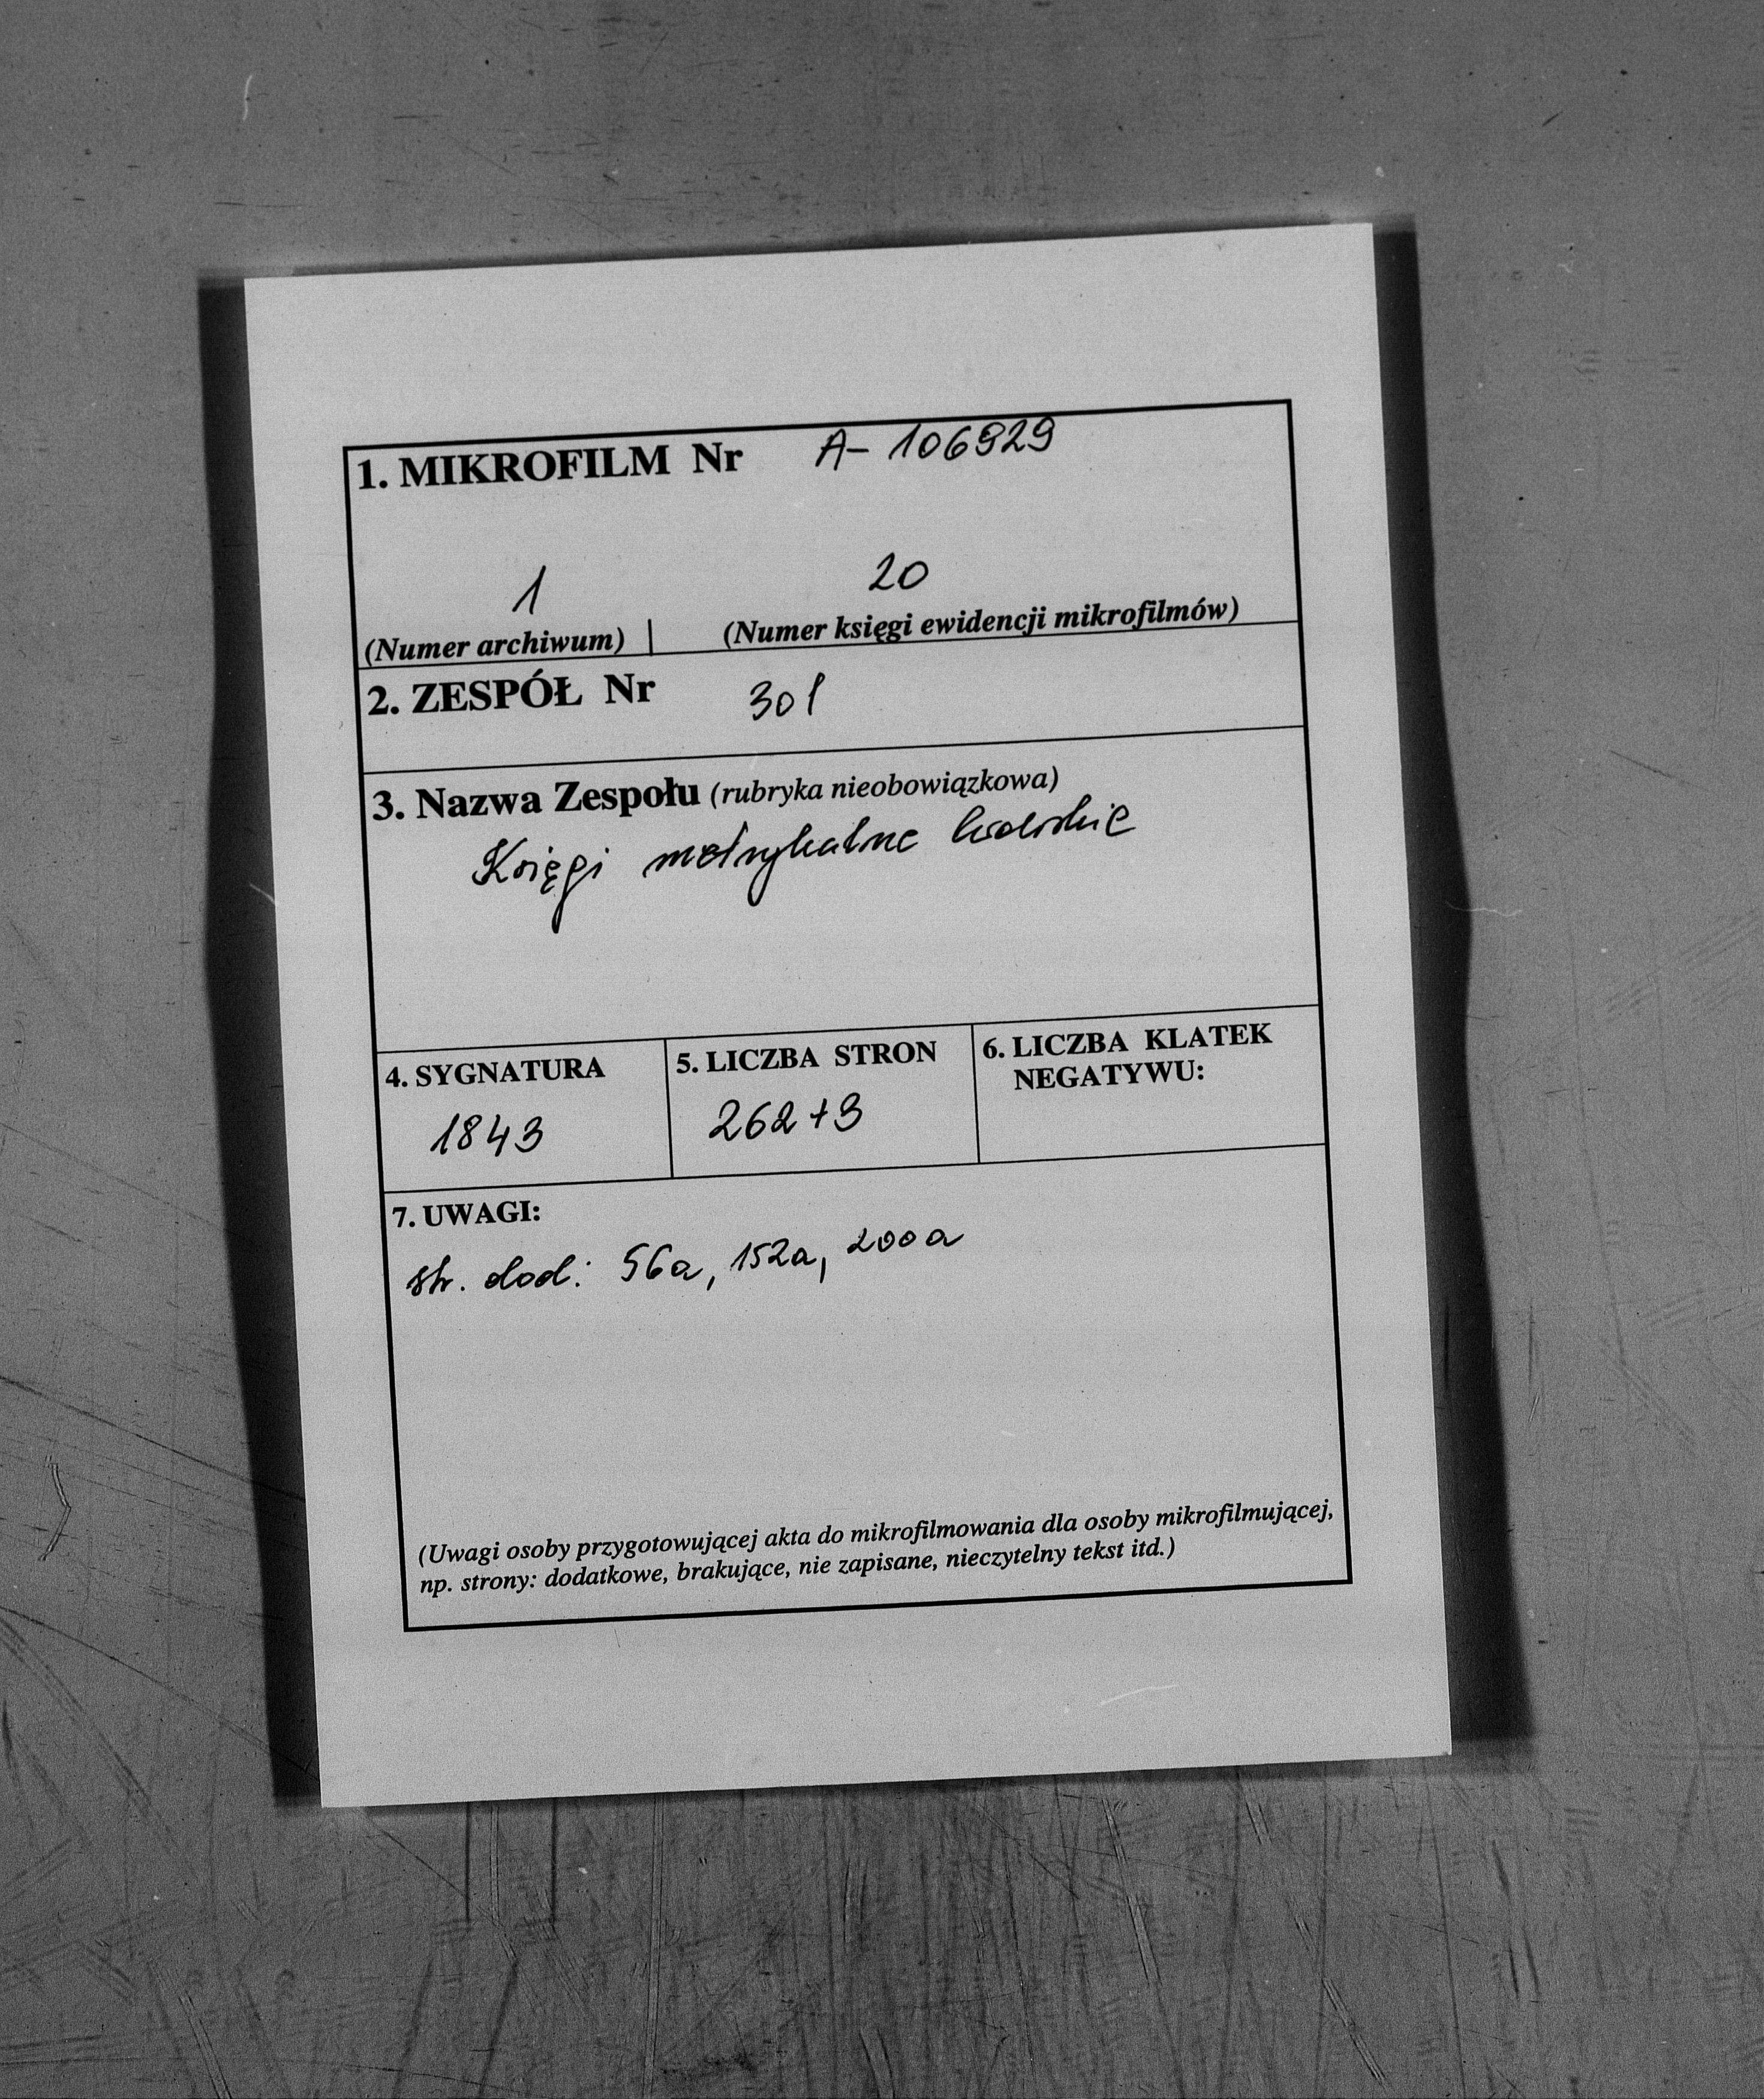 1. MIKROFILM Nr A- 106929
1 20
(Numer archiwum) (Numer księgi ewidencji mikrofilmów)
2. ZESPÓŁ Nr 301
3. Nazwa Zespołu (rubryka nieobowiązkowa)
Księgi metrykalne
4. SYGNATURA 5. LICZBA STRON 6. LICZBA KLATEK
NEGATYWU:
1843 262+3
7. UWAGI:
str. dod: 56a, 152a, 200a
(Uwagi osoby przygotowującej akta do mikrofilmowania dla osoby mikrofilmującej,
np. strony: dodatkowe, brakujące, nie zapisane, nieczytelny tekst itd.)